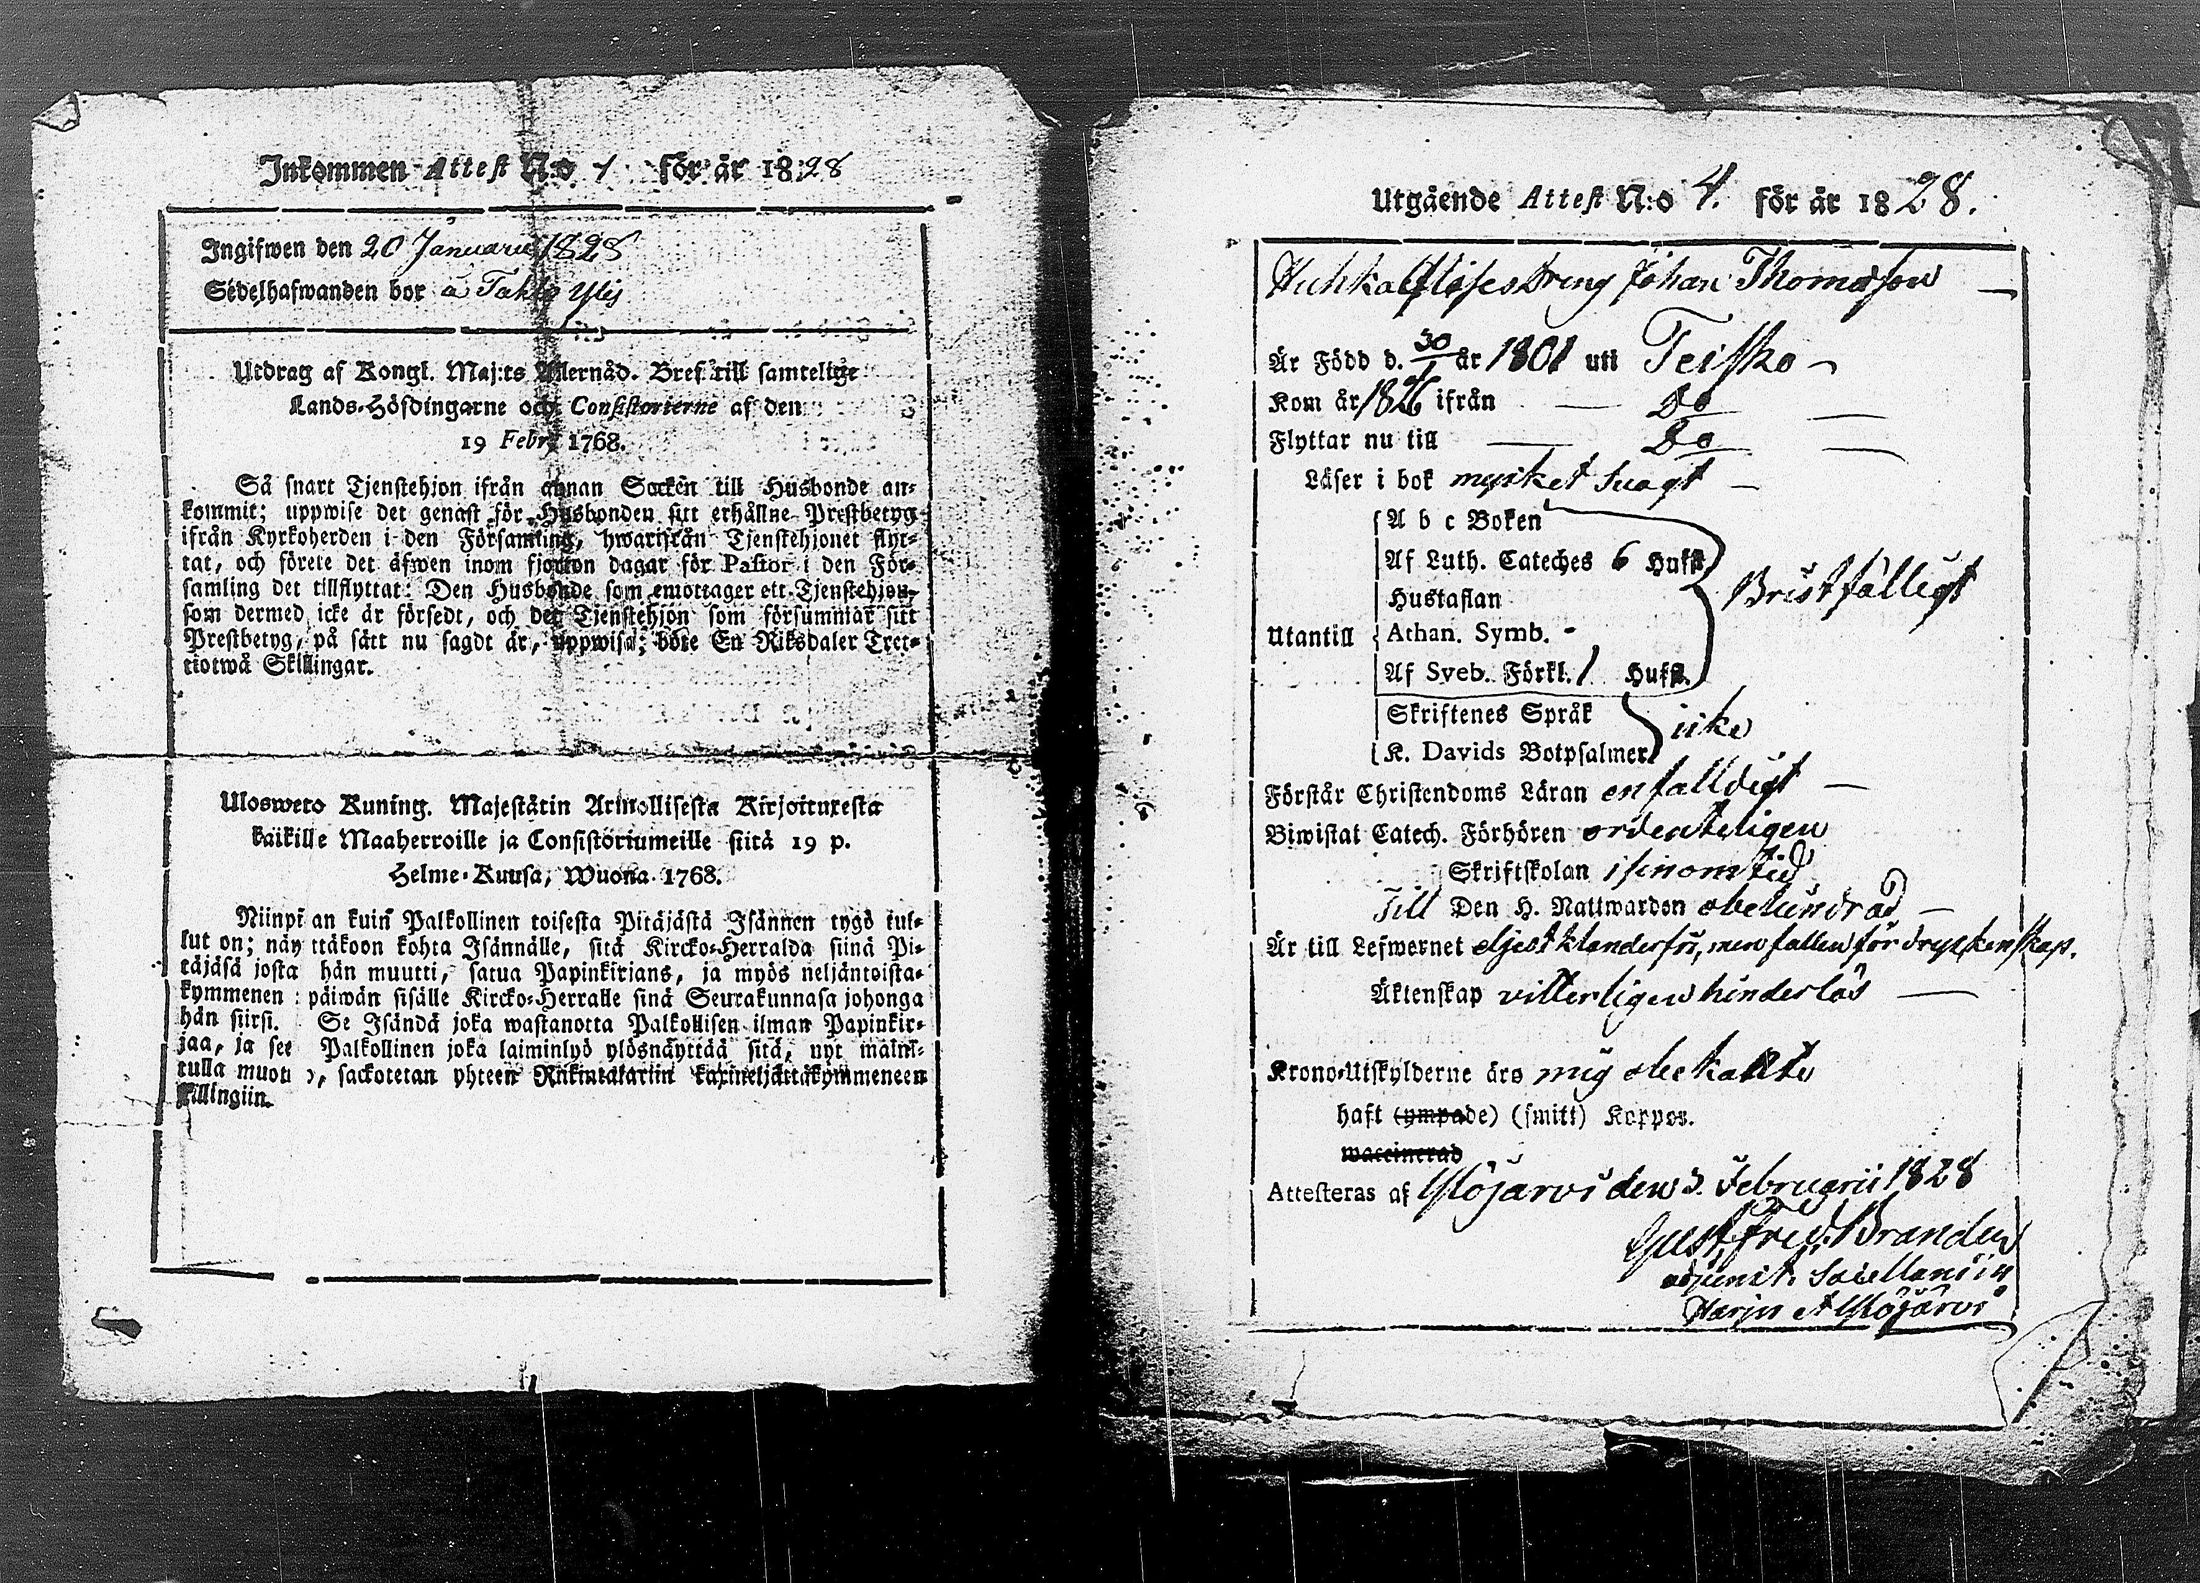 Inkommen Attest N:o 1 för år 1828
Ingifwen den 20 Januarii 1828
Sedelhafwanden bor å Yli
Utdrag af Kongl. Maj:ts Allernåd. Bref till samtelige
Lands-Höfdingarne och Consistorierne af den
19 Febr. 1768.
Så snart Tjenstehjon ifrån annan Socken till Husbonde an-
kommit; uppwise det genast för Husbonden sitt erhållne Prestbetyg
ifrån Kyrkoherden i den Församling, hwarifrån Tjenstehjonet flyt-
tat, och förete det äfwen inom fjorton dagar för Pastor i den För-
samling det tillflyttat: Den Husbonde som emottager ett Tjenstehjon,
som dermed icke är försedt, och det Tjenstehjon som försummar sitt
Prestbetyg, på sätt nu sagdt är, uppwisa; böte En Riksdaler Tret-
tiotwå Skillingar.
Ulosweto Kuning. Majestätin Armollisesta Kirjoituxesta
kaikille Maaherroille ja Consistoriumeille siitä 19 p.
Helme-Kuusa, Wuona 1768.
Niinpian kuin Palkollinen toisesta Pitäjästä Isännen tygö tul-
lut on; näyttäköön kohta Isännälle, sitä Kircko-Herralda siinä Pi-
täjäsä josta hän muutti, satua Papinkirjans, ja myös neljäntoista-
kymmenen päiwän sisälle Kircko-Herralle sinä Seurakunnasa johonga
hän siirsi. Se Isändä joka wastanotta Palkollisen ilman Papinkir-
jaa, ja see Palkollinen joka laiminlyö ylösnäyttää sitä, nyt maini-
tulla muotto, sackotetan yhteen Rikintalariin kaxineljättäkymmeneen
killingiin.
Utgående Attest N:o 4. för år 1828.
Dreng Johan Thomasson
Är Född d. 30/1 år 1801 uti Teisko
Kom år 1826 ifrån Do
Flyttar nu till Do
Läser i bok mycket svagt
A b c Boken
Af Luth. Cateches 6 Hufst.
Hustaflan Bristfälligt
Utantill Athan. Symb. -
Af Sveb. Förkl. 1 Hufst.
Skriftenes Språk icke
K. Davids Botpsalmer
Förstår Christendoms Läran enfalldigt
Biwistat Catech. Förhören ordenteligen
Skriftskolan i sinom tid
Till Den H. Nattwarden obehindrad
Är till Lefwernet eljest klanderfri, men fallen för dryckenskap.
Äktenskap vitterligen hinderlös
Krono-Utskylderne äro mig obekante
haft (ympade) (smitt) Koppor.
waccinerad
Attesteras af Ylöjärvi den 3. Februarii 1828
Gust. Fred. Brander
adjunct. Sacellani in
Harju et Ylöjärvi